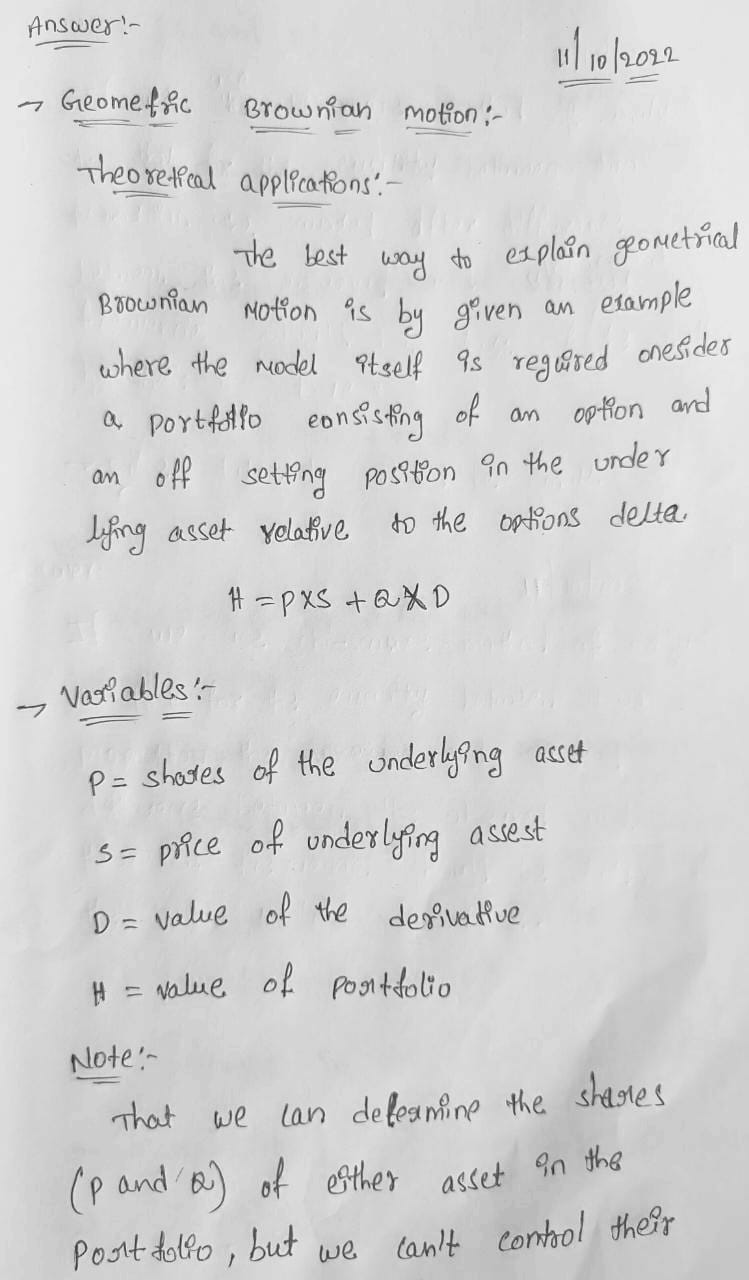 Answer:-
11/10/2022
→ Geometric Brownian motion:-
Theoretical applications:-
The best way to explain geometrical
Brownian Motion is by given an example
where the model itself is required onesider
a portfolio consisting of an option and
an off setting position in the under
lying asset relative to the options delta.
H = P×S + Q×D
→ Variables:-
P = shares of the underlying asset
S = price of underlying assest
D = value of the derivative
H = value of portfolio
Note:-
That we can determine the shares
(P and Q) of either asset in the
Portfolio, but we can't control their